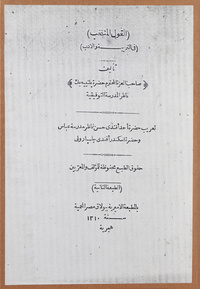 (القول المنتخب)
(فى التربية والادب)
تأليف
صاحب العزة المحترم حضرة بلتيه بك
ناظر المدرسة التوفيقية
تعريب حضرة أحد أفندى حسن ناظر مدرسة عباس
وحضرة اسكندر أفندى
حقوق الطبع محفوظة للمؤلف والمعربين
(الطبعة الثانية)
بالمطبعة الاميرية ببولاق مصر المحمية
سنة ١٣١٠
هجرية